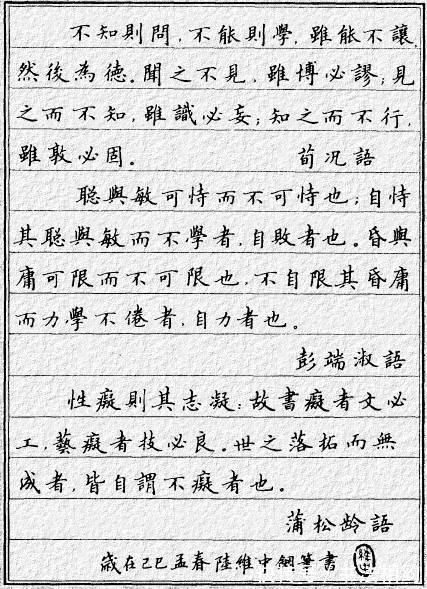 不知則問，不能則學，雖能不讓，
然後為德。聞之不見，雖博必謬；見
之而不知，雖識必妄；知之而不行，
雖敦必困。
荀況語
聰與敏可恃而不可恃也；自恃
其聰與敏而不學者，自敗者也。昏與
庸可限而不可限也，不自限其昏庸
而力學不倦者，自力者也。
彭端淑語
性癡則其志凝：故書癡者文必
工，藝癡者技必良。世之落拓而無
成者，皆自謂不癡者也。
蒲松龄語
歲在己巳孟春陸維中鋼筆書